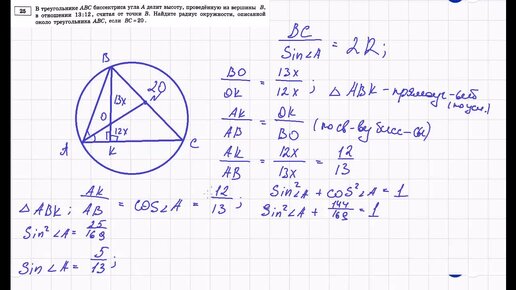 25
В треугольнике ABC биссектриса угла A делит высоту, проведённую из вершины B,
в отношении 13:12, считая от точки B. Найдите радиус окружности, описанной
около треугольника ABC, если BC=20.
BC / Sin∠A = 2R;
BO / OK = 13x / 12x ; △ ABK - прямоуг-ый
(по усл.)
AK / AB = OK / BO (по св-ву бисс-сы)
AK / AB = 12x / 13x = 12 / 13
B
20
13x
N
O
12x
A
K
C
△ ABK; AK / AB = cos∠A = 12 / 13 ;
Sin²∠A + cos²∠A = 1
Sin²∠A + 144 / 169 = 1
Sin²∠A = 25 / 169
Sin∠A = 5 / 13 ;